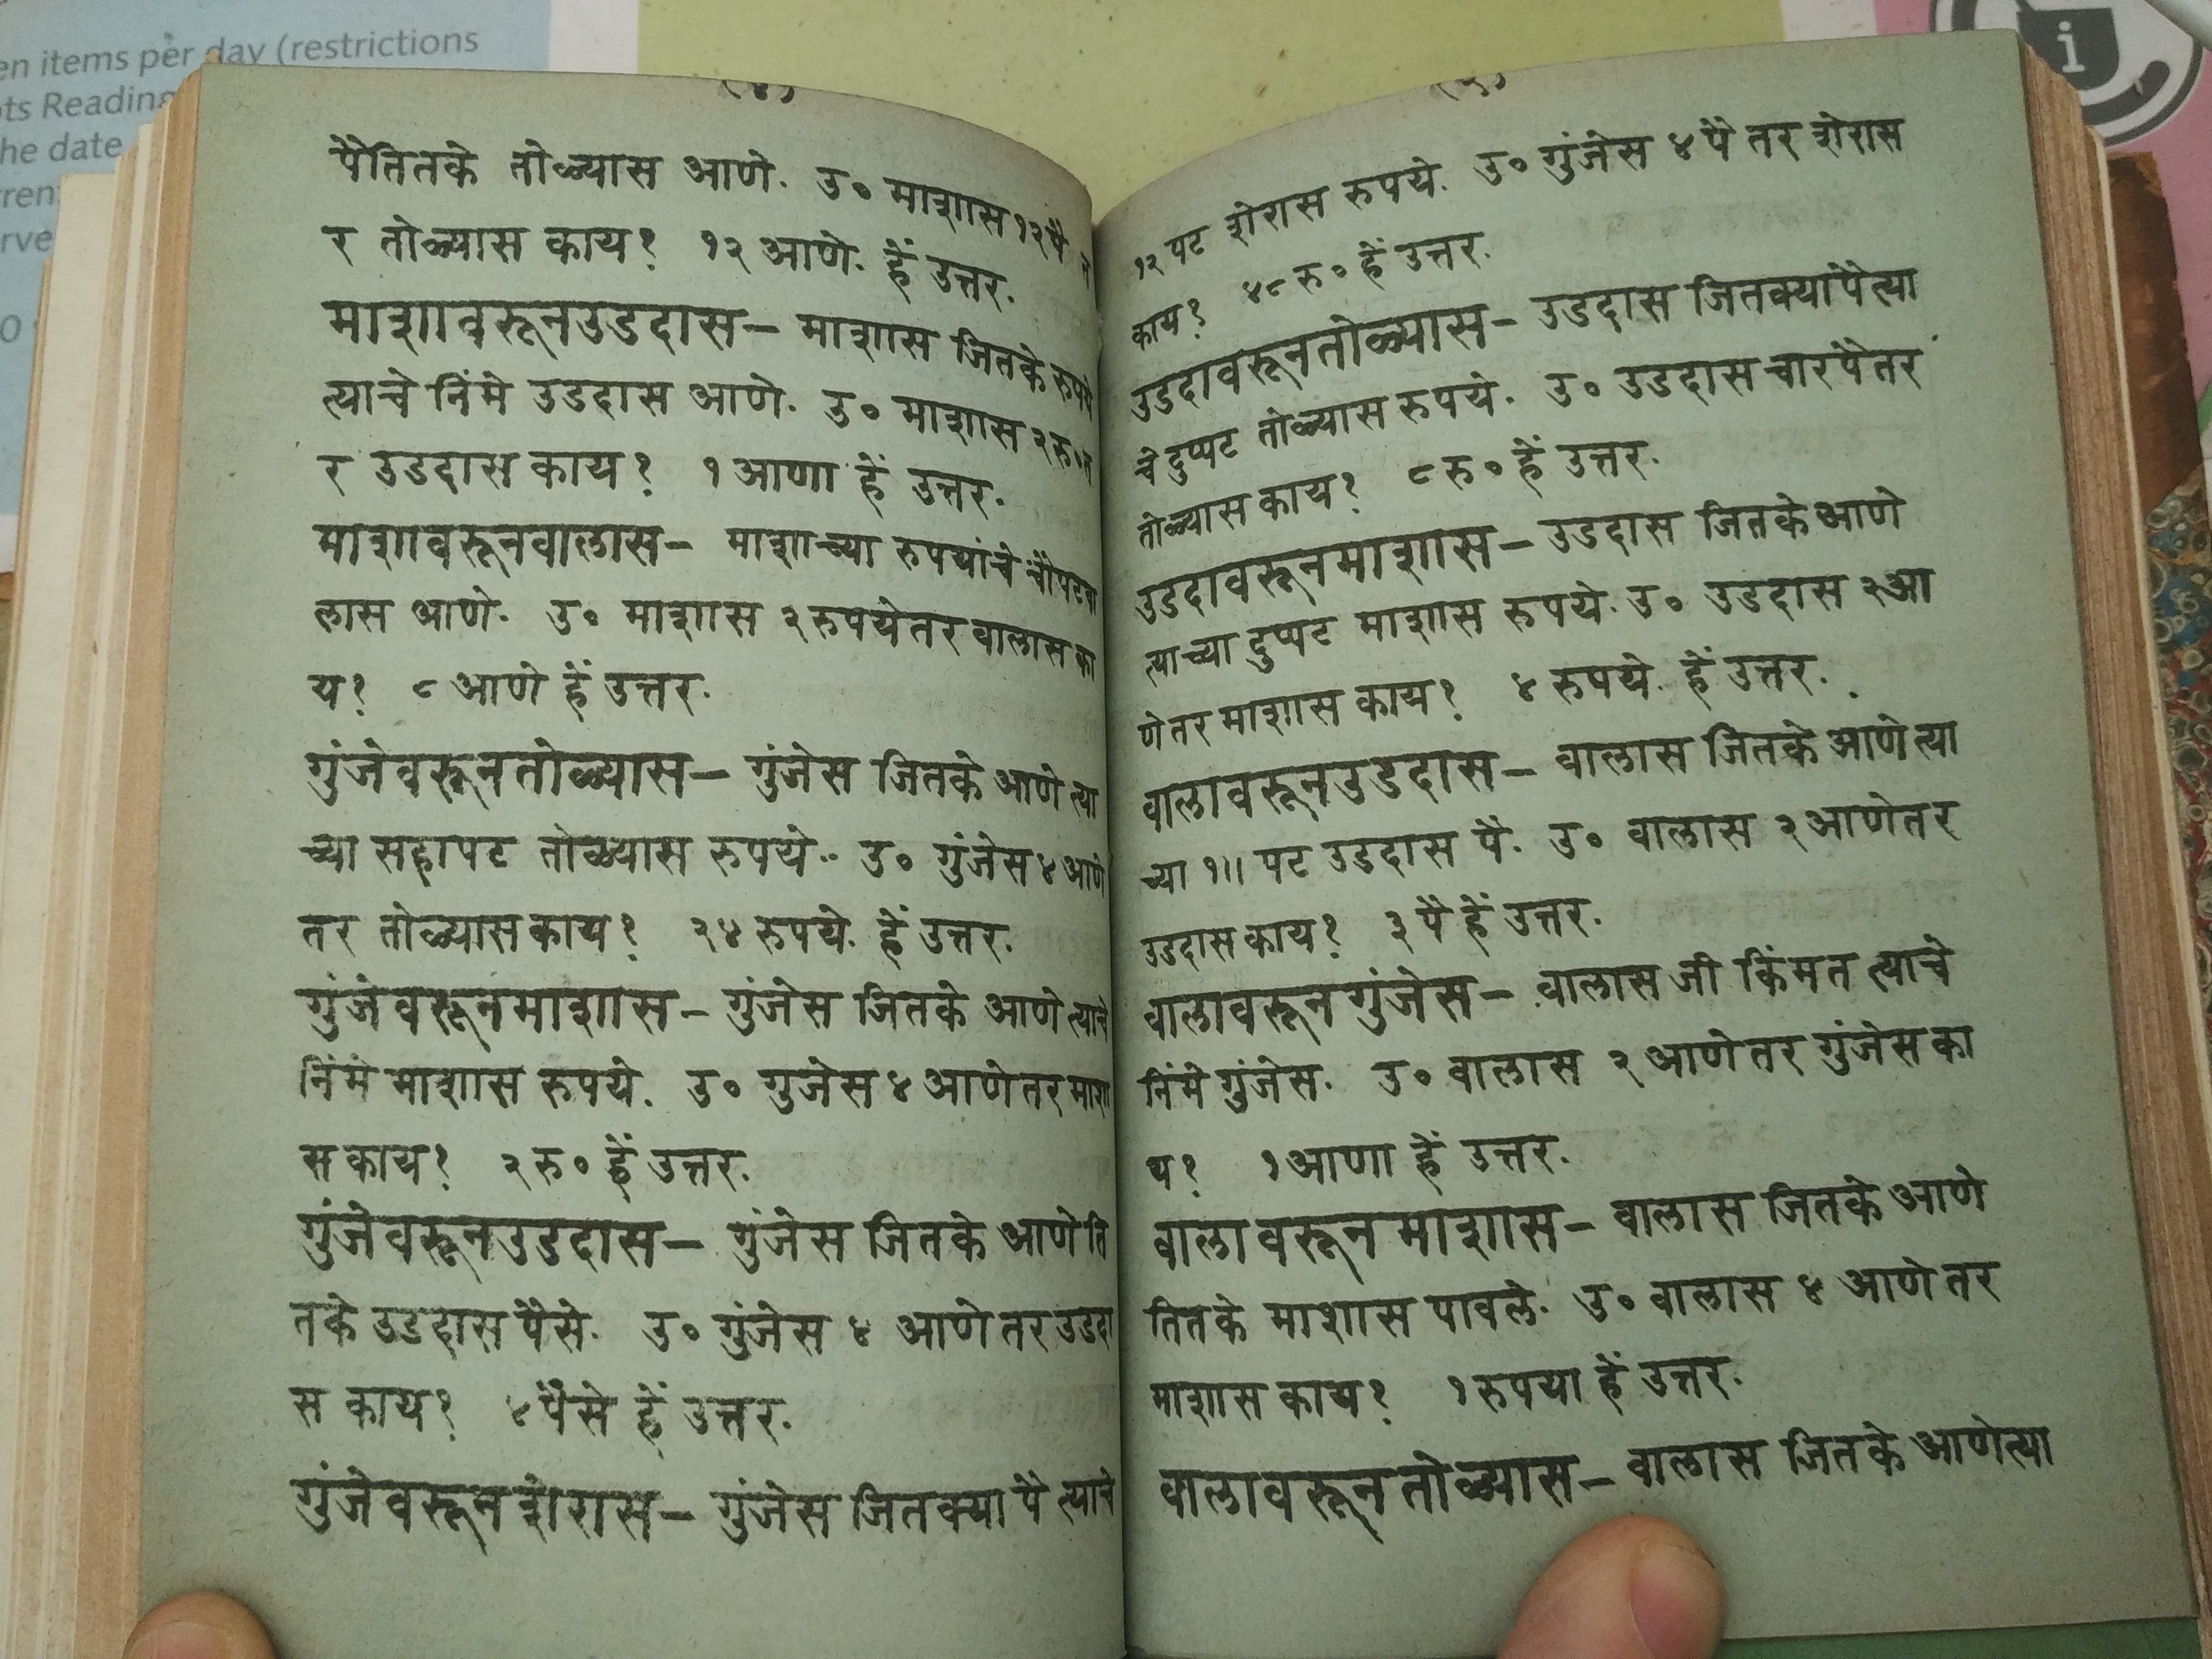 en items per day (restrictions
ts Reading
he date
ren
rve
0
i
(४)
पैतितके तोळ्यास आणे. उ० माशास १२ पै त
र तोळ्यास काय? १२ आणे. हें उत्तर.
माशावरूनउडदास– माशास जितके रुपये
त्याचे निंमे उडदास आणे. उ० माशास २ रु० त
र उडदास काय? १ आणा हें उत्तर.
माशावरूनवालास– माशाच्या रुपयांचे चौपटवा
लास आणे. उ० माशास २ रुपये तर वालास का
य? ८ आणे हें उत्तर.
गुंजेवरूनतोळ्यास– गुंजेस जितके आणे त्या
च्या सहापट तोळ्यास रुपये.. उ० गुंजेस ४ आणे
तर तोळ्यास काय? २४ रुपये. हें उत्तर.
गुंजेवरूनमाशास– गुंजेस जितके आणे त्याचे
निंमे माशास रुपये. उ० गुजेस ४ आणे तर माशा
स काय? २ रु० हें उत्तर.
गुंजेवरूनउडदास– गुंजेस जितके आणे ति
तके उडदास पैसे. उ० गुंजेस ४ आणे तर उडदा
स काय? ४ पैसे हें उत्तर.
गुंजेवरूनशेरास– गुंजेस जितक्या पै त्याचे
(५)
१२ पट शेरास रुपये. उ० गुंजेस ४ पै तर शेरास
काय? ४८ रु० हें उत्तर.
उडदावरूनतोळ्यास– उडदास जितक्यापै त्या
चे दुप्पट तोळ्यास रुपये. उ० उडदास चारपै तर
तोळ्यास काय? ८ रु० हें उत्तर.
उडदावरूनमाशास– उडदास जितके आणे
त्याच्या दुप्पट माशास रुपये. उ० उडदास २ आ
णे तर माशास काय? ४ रुपये. हें उत्तर.
वालावरूनउडदास– वालास जितके आणे त्या
च्या १।। पट उडदास पै. उ० वालास २ आणे तर
उडदास काय? ३ पै हें उत्तर.
वालावरून गुंजेस– वालास जी किंमत त्याचे
निंमे गुंजेस. उ० वालास २ आणे तर गुंजेस का
य? १ आणा हें उत्तर.
वाला वरून माशास– वालास जितके आणे
तितके माशास पावले. उ० वालास ४ आणे तर
माशास काय? १ रुपया हें उत्तर.
वालावरून तोळ्यास– वालास जितके आणे त्या